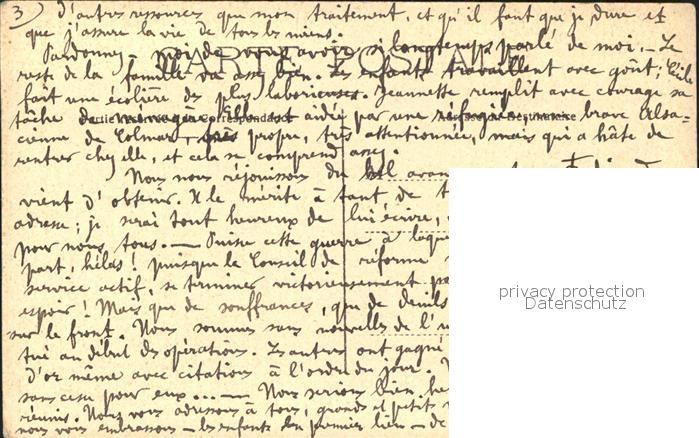 3) d'autres ressources que mon traitement, et qu'il faut que je dure et
que j'assure la vie de tous les miens.
Pardonnez-moi de vous avoir si longtemps parlé de moi. — Le
reste de la famille va assez bien. Les enfants travaillent avec goût; Cécile
fait une écolière des plus laborieuses. Jeannette remplit avec courage sa
tâche de ménagère. Elle est aidée par une réfugiée, une brave Alsa=
cienne de Colmar, très propre, très attentionnée, mais qui a hâte de
rentrer chez elle, et cela se comprend assez.
Nous nous réjouissons du bel avan
vient d'obtenir. Il le mérite à tant de t
adresse; je serai tout heureux de lui écrire,
pour nous tous. — Puisse cette guerre à laque
part, hélas! puisque le Conseil de réforme
service actif, se terminer victorieusement pa
espoir! Mais que de souffrances, que de deuils
sur le front. Nous sommes sans nouvelles de l'u
tué au début des opérations. Les autres ont gagné
d'or même avec citations à l'ordre du jour.
sans cesse pour eux... — Nous serions bien he
réunis. Nous vous adressons à tous, grands et petits
nous vous embrassons — les enfants en premier lieu — de
CARTE POSTALE
Correspondance
privacy protection
Datenschutz